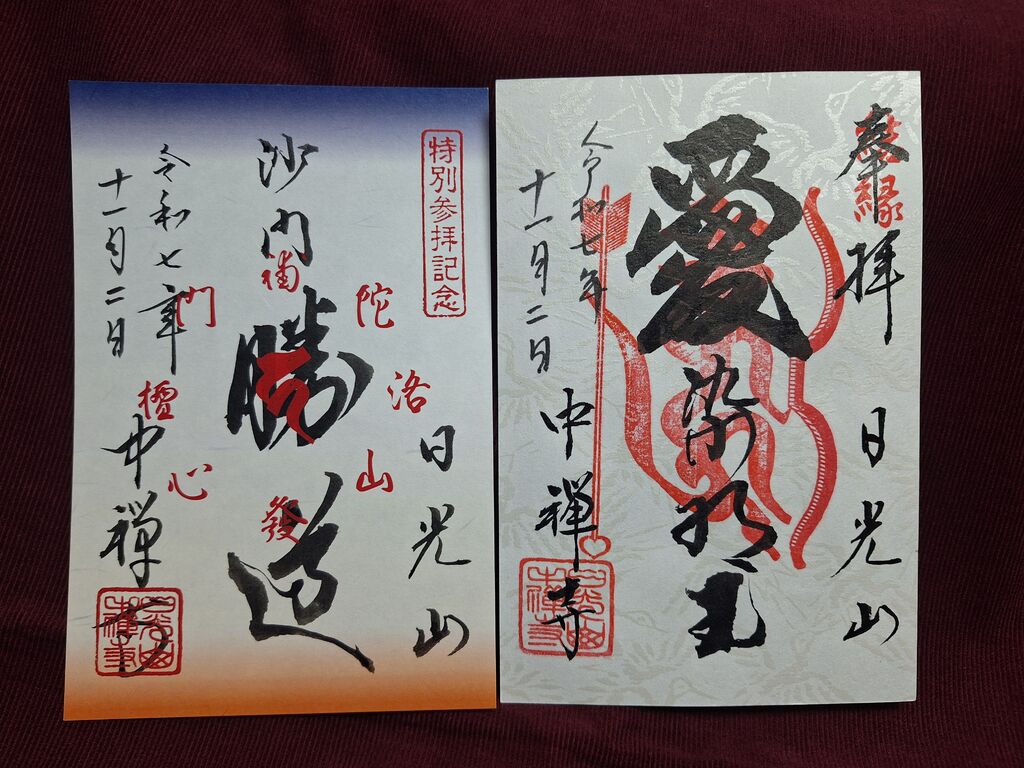 特別参拝記念
日光山
沙門勝道
補陀洛山發心檀門
令和七年
十一月二日
中禅寺
奉拝
縁
日光山
愛染明王
令和七年
十一月二日
中禅寺